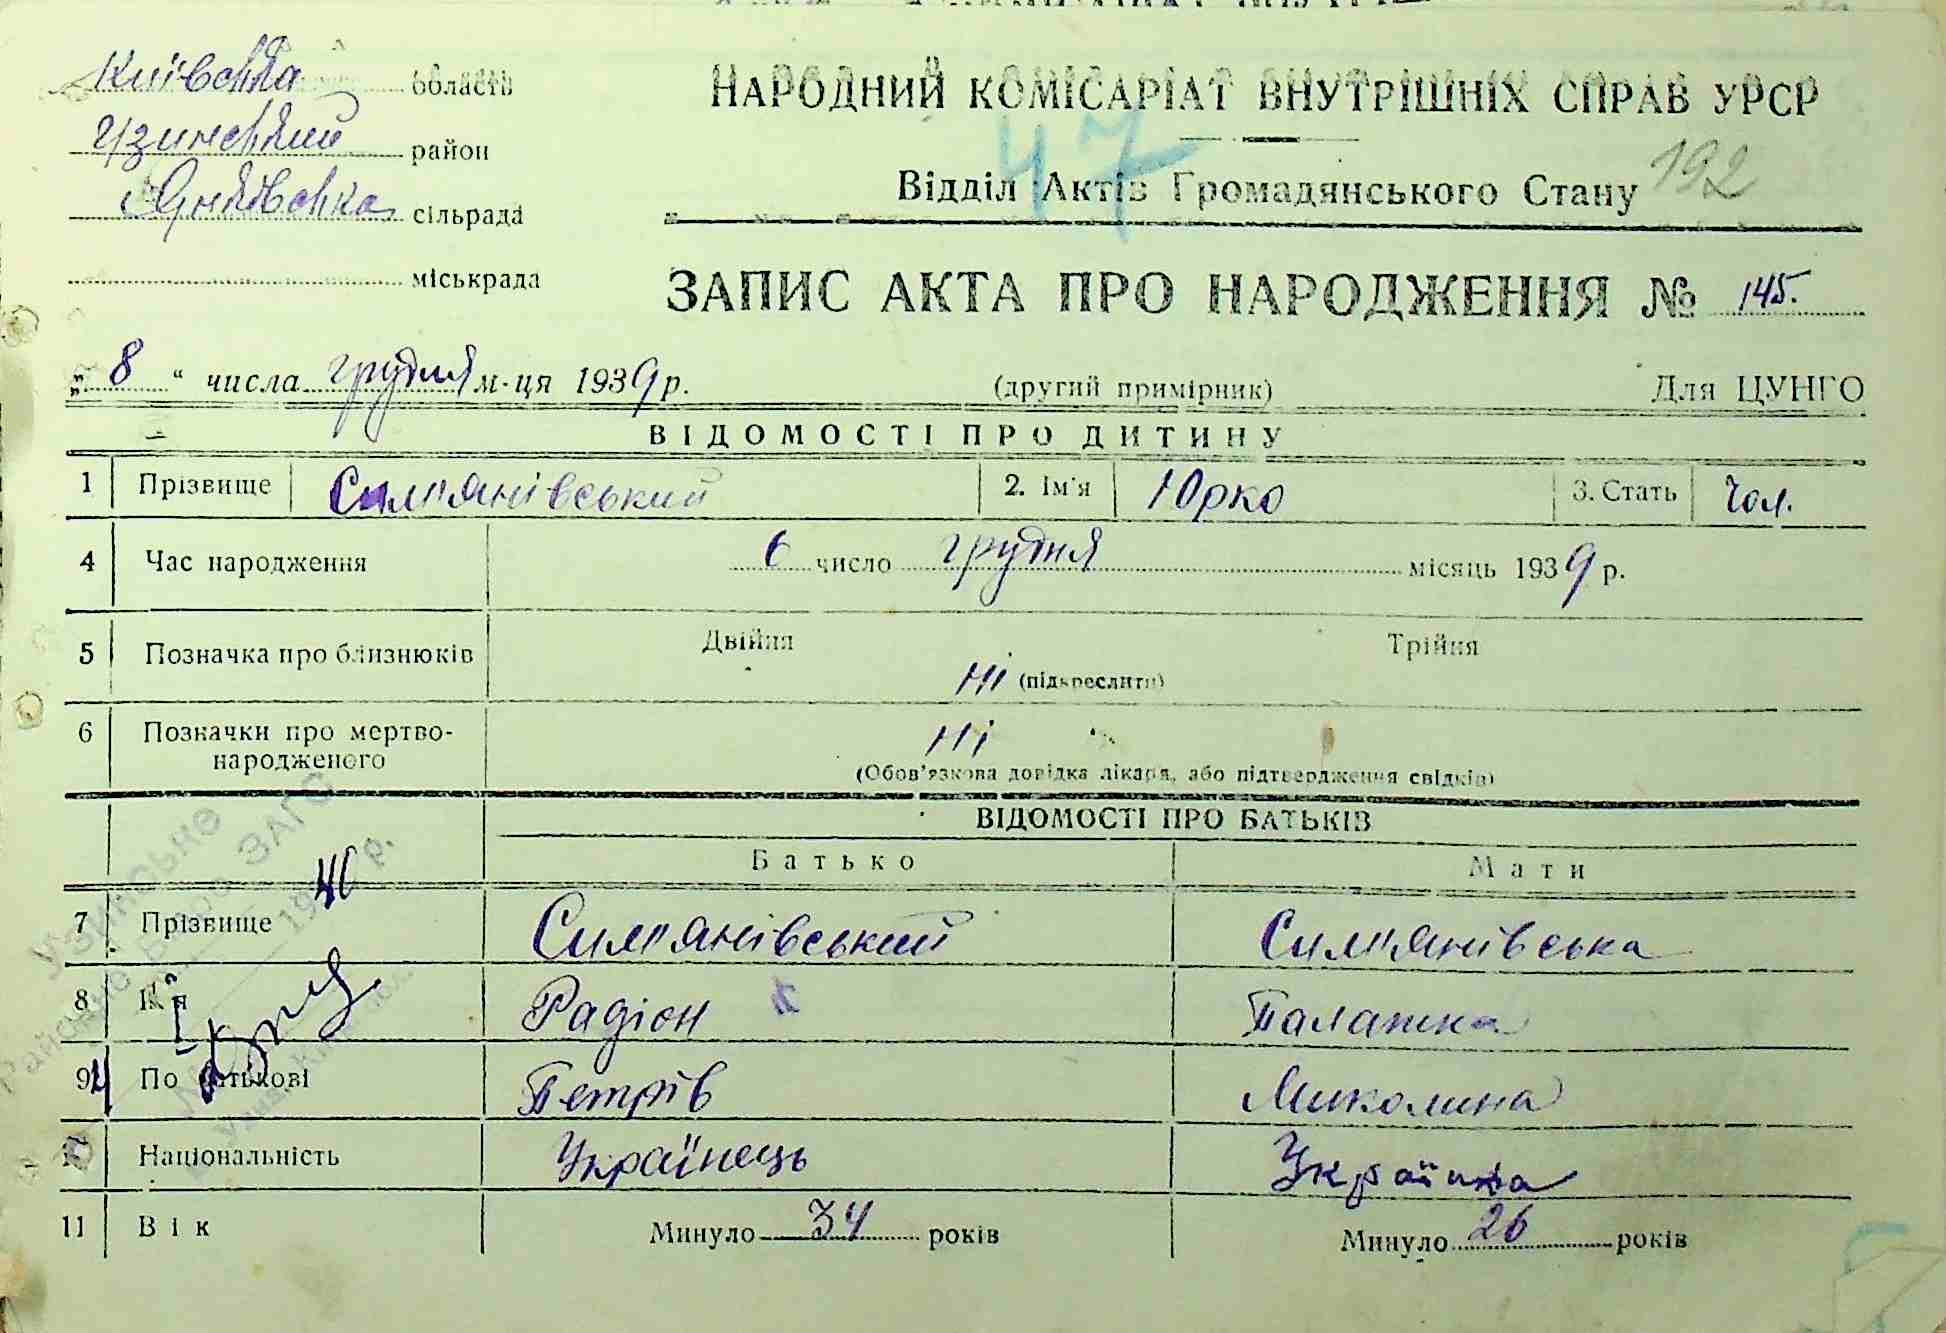 Київська область
Узинський район
Янківська сільрада
міськрада
НАРОДНИЙ КОМІСАРІАТ ВНУТРІШНІХ СПРАВ УРСР
47
Відділ Актів Громадянського Стану 192
ЗАПИС АКТА ПРО НАРОДЖЕННЯ № 145.
„ 8 “ числа грудня м-ця 1939 р. (другий примірник) Для ЦУНГО
ВІДОМОСТІ ПРО ДИТИНУ
1 Прізвище Сим'янівський 2. Ім'я Юрко 3. Стать Чол.
4 Час народження 6 число грудня місяць 1939 р.
5 Позначка про близнюків Двійня Трійня
ні (підкреслити)
6 Позначки про мертво-
народженого ні
(Обов'язкова довідка лікаря, або підтвердження свідків)
ВІДОМОСТІ ПРО БАТЬКІВ
Батько Мати
Узинське
Районне Бюро ЗАГС
1940 р.
7 Прізвище Сим'янівський Сим'янівська
8 Ім'я Радіон Палажка
9 По батькові Петрів Миколина
10 Національність Українець Українка
11 Вік Минуло 34 років Минуло 26 років